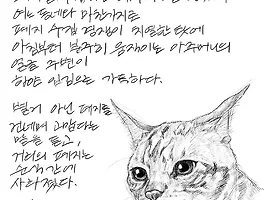 여느 동네와 마찬가지로
폐지 수집 경쟁이 치열한 탓에
아침부터 분주히 움직이는 아주머니의
얼굴 주변이
항상 일감으로 가득하다.
별거 아닌 폐지를
건네며 고맙다는
말을 듣고,
거리의 폐지는
순식간에
사라졌다.